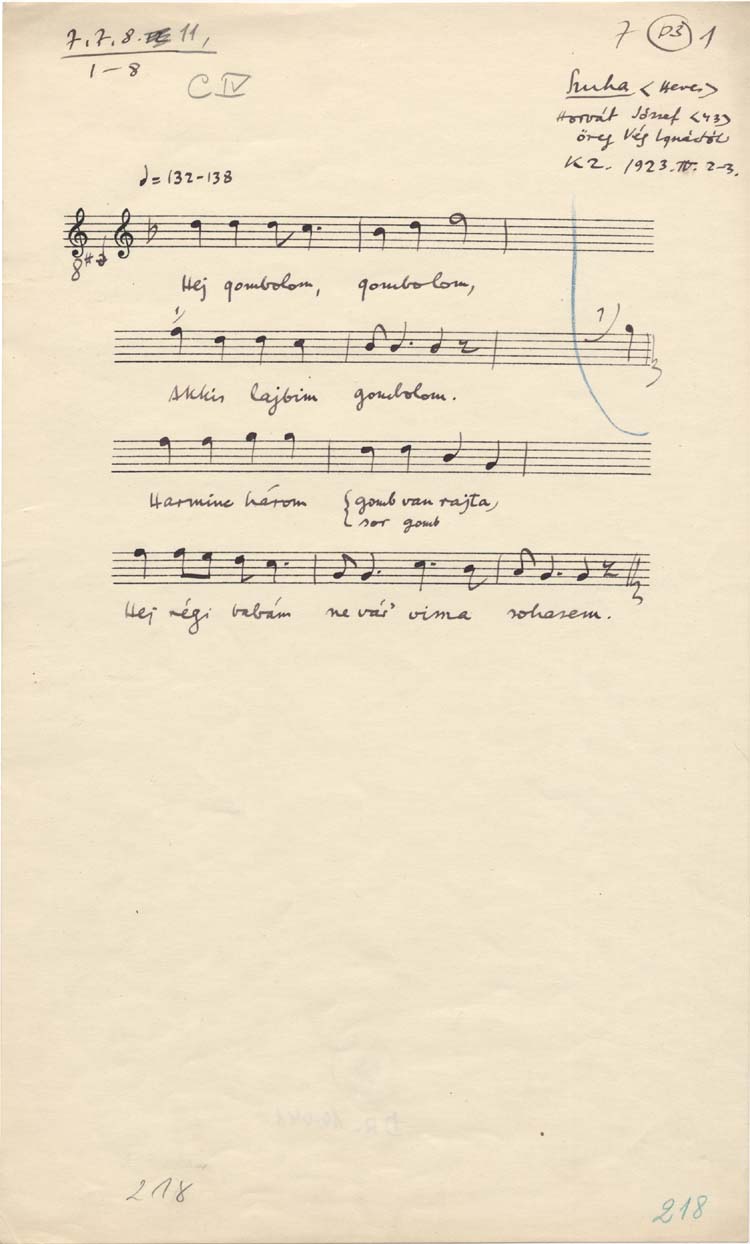 7. 7. 8. 11,
1-8
C IV
7 1
Szuha < Heves >
Horvát József <43>
öreg Vég Ignáctól
KZ. 1923. IV. 2-3.
= 132-138
8
Hej gombolom, gombolom,
1)
1)
Akkis lajbim gombolom.
Harminc három gomb van rajta,
sor gomb
Hej régi babám ne vár vissza sohasem.
218
218